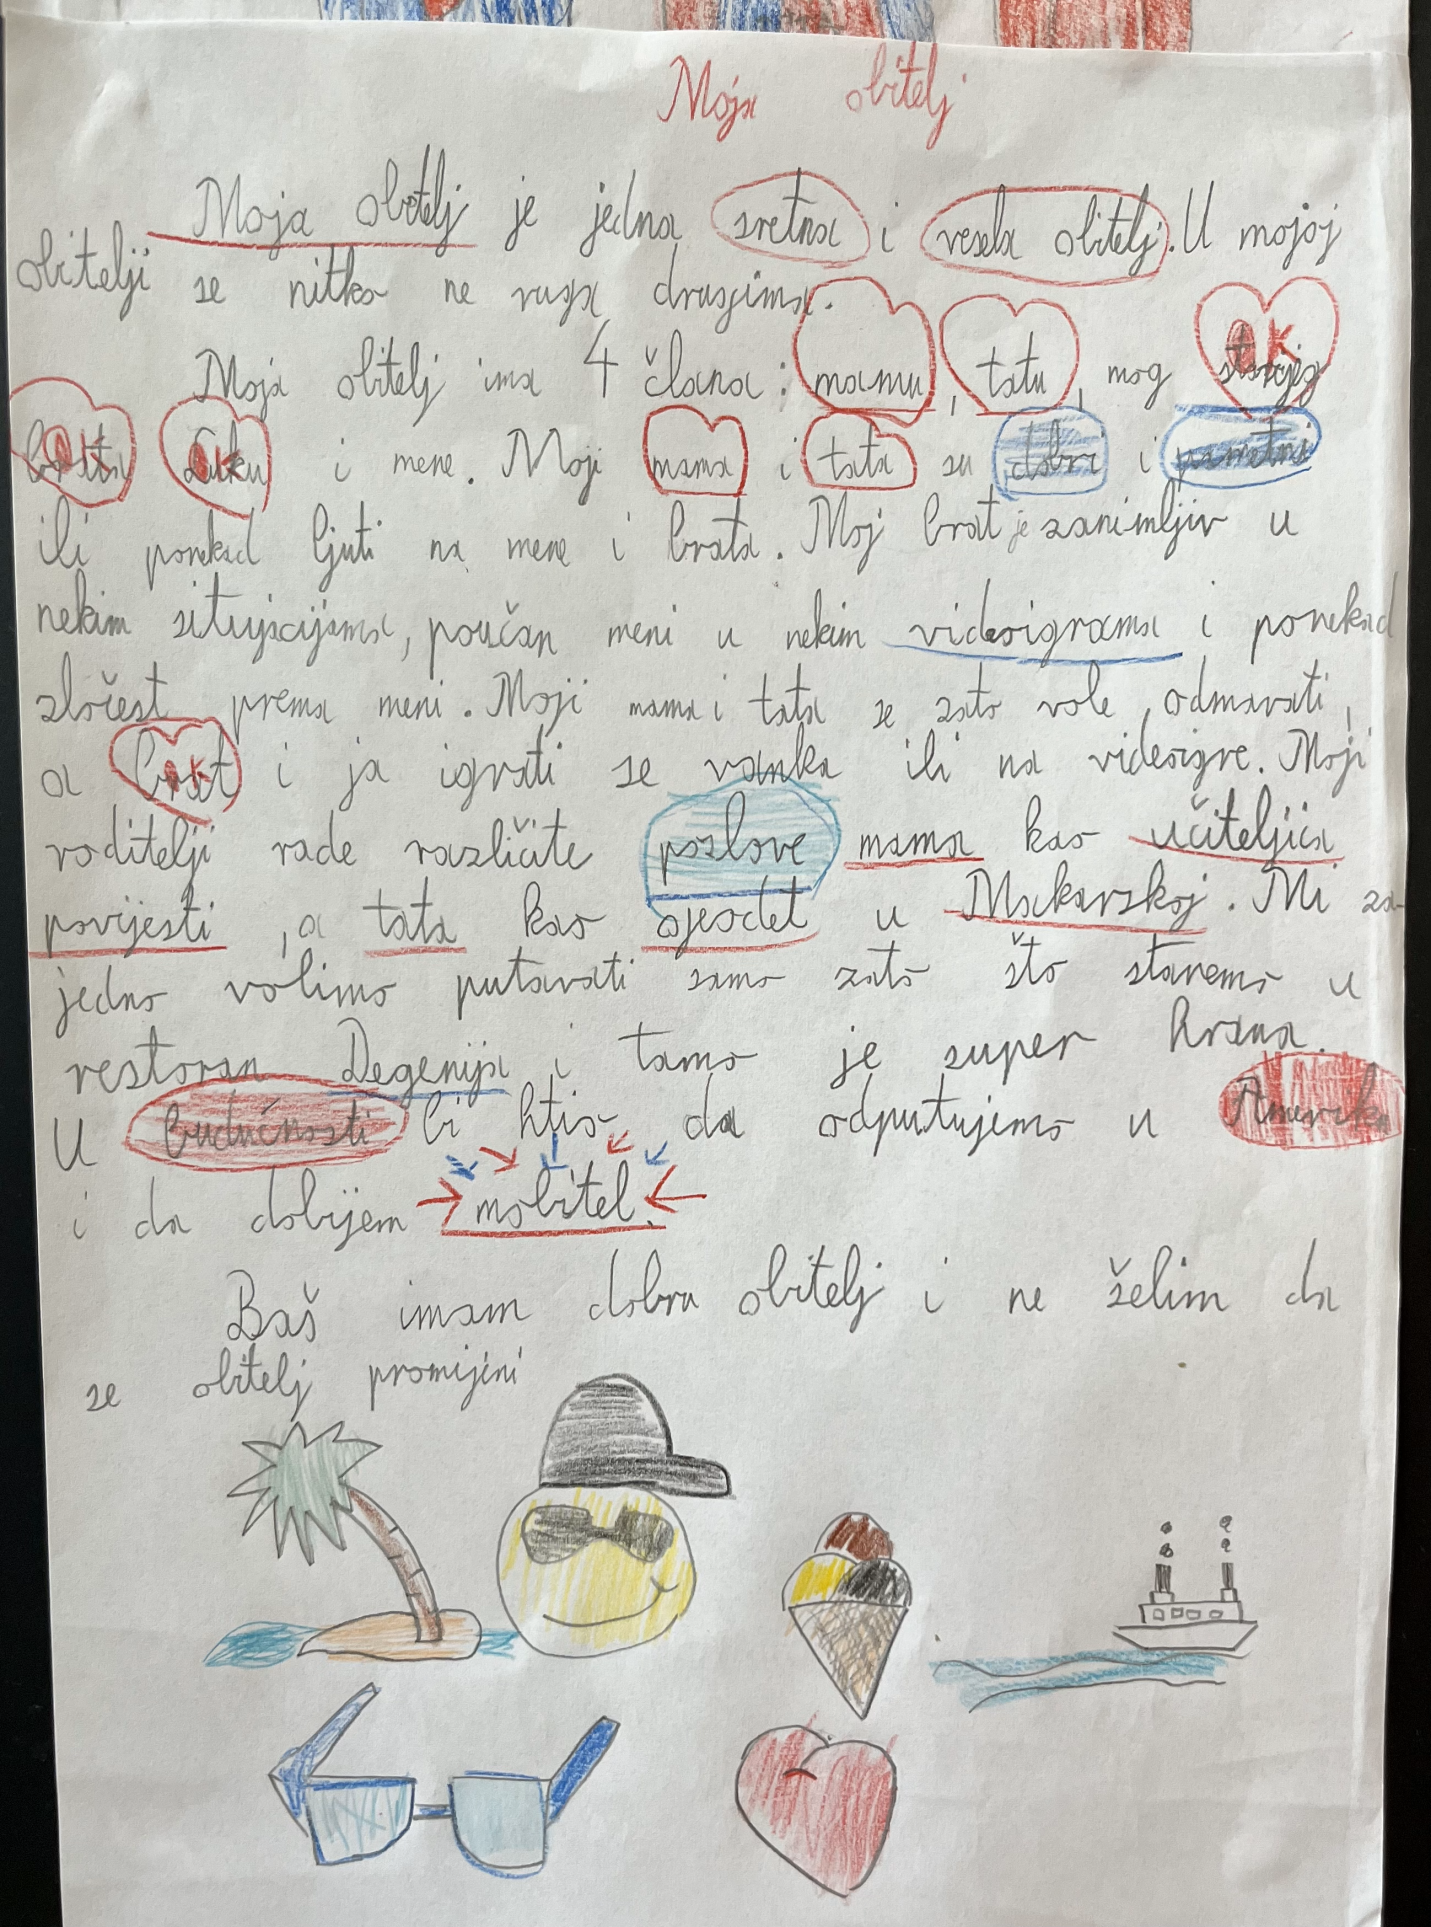 Moja obitelj
Moja obitelj je jedna sretna i vesela obitelj. U mojoj
obitelji se nitko ne ruga drugima.
Moja obitelj ima 4 člana: mamu, tatu, mog starijeg
OK
brata Luku i mene. Moji mama i tata su dobri i pametni
OK OK
ili ponekad ljuti na mene i brata. Moj brat je zanimljiv u
nekim situjacijama, poučan meni u nekim videoigrama i ponekad
zločest prema meni. Moji mama i tata se zato vole odmarati,
a brat i ja igrati se vanka ili na videoigre. Moji
OK
roditelji rade različite poslove mama kao učiteljica
povijesti, a tata kao gjeodet u Makarskoj. Mi za-
jedno volimo putavati samo zato što stanemo u
restoran Degenija i tamo je super hrana.
U budućnosti bi htio da odputujemo u Ameriku
i da dobijem mobitel.
Baš imam dobru obitelj i ne želim da
se obitelj promijeni